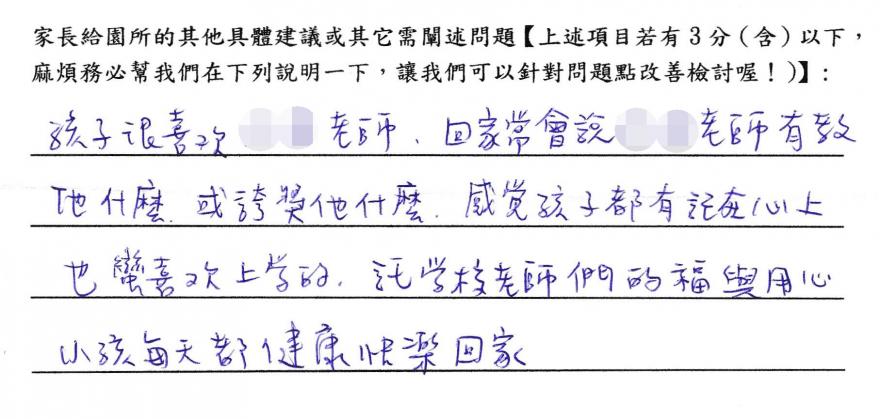 家長給園所的其他具體建議或其它需闡述問題【上述項目若有3分(含)以下，
麻煩務必幫我們在下列說明一下，讓我們可以針對問題點改善檢討喔！)】：
孩子很喜欢 老師、回家常會說 老師有教
他什麼. 或誇獎他什麼. 感觉孩子都有記在心上
也蠻喜欢上学的. 託学校老師們的福與用心
小孩每天都健康快樂回家